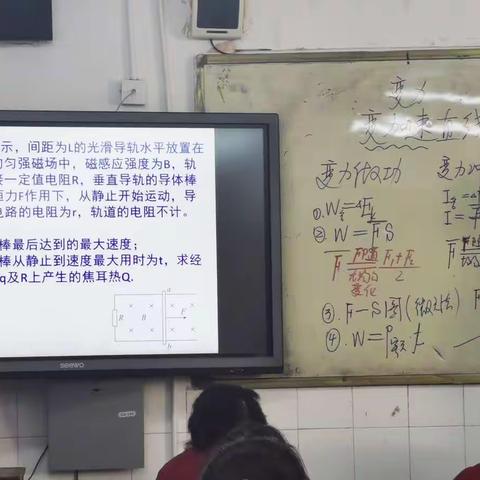 示，间距为L的光滑导轨水平放置在
匀强磁场中，磁感应强度为B，轨
接一定值电阻R，垂直导轨的导体棒
恒力F作用下，从静止开始运动，导
电路的电阻为r，轨道的电阻不计。
棒最后达到的最大速度；
棒从静止到速度最大用时为t，求经
q及R上产生的焦耳热Q.
a
R B F
b
seewo
变力
变力做功
①.W合=ΔEk
② W=F̄S
F̄ F随 F₁+F₂
均匀 2
变化
③.F-S图(微元法)
④.W=P t
I合=Δ
I=F̄